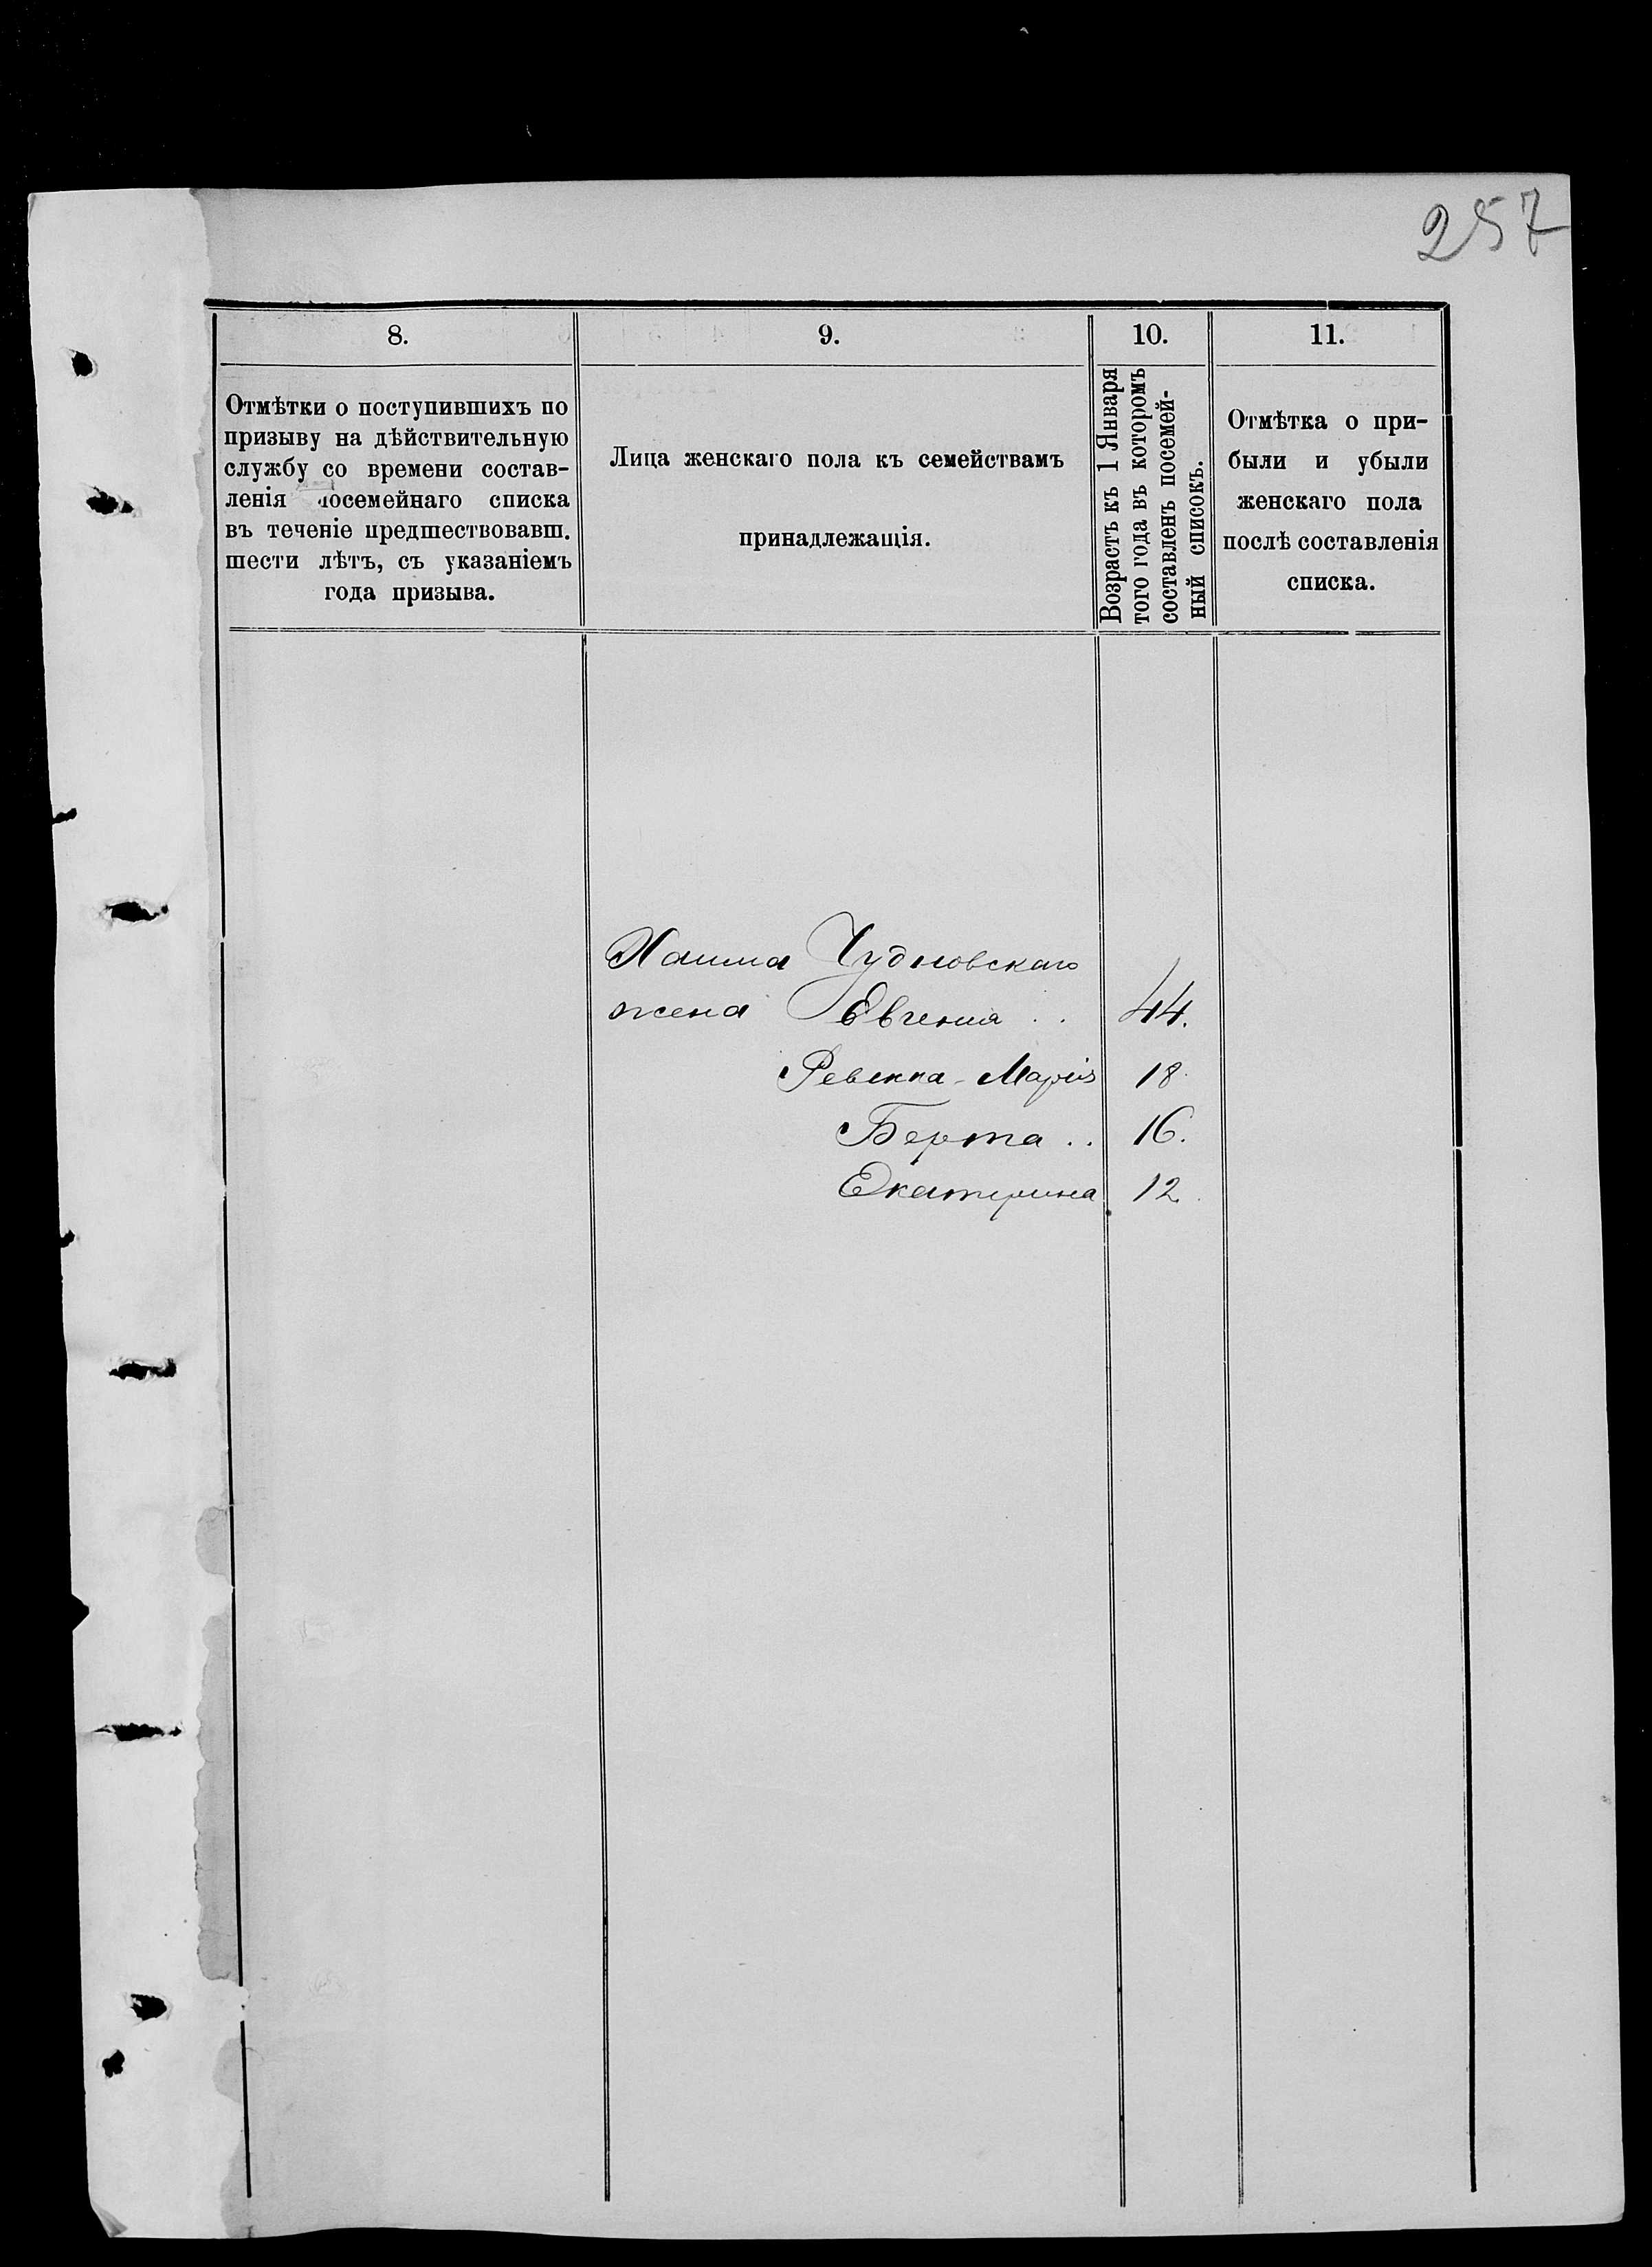 257
8.
9.
10.
11.
Отмѣтки о поступившихъ по
призыву на дѣйствительную
службу со времени состав-
ленія посемейнаго списка
въ теченіе предшествовавш.
шести лѣтъ, съ указаніемъ
года призыва.
Лица женскаго пола къ семействамъ
принадлежащія.
Возрастъ къ 1 Января
того года въ которомъ
составленъ посемей-
ный списокъ.
Отмѣтка о при-
были и убыли
женскаго пола
послѣ составленія
списка.
Хаима Чудновскаго
жена Евгенія . . 44.
Ревекка-Марія 18
Берта . . 16.
Екатерина 12.